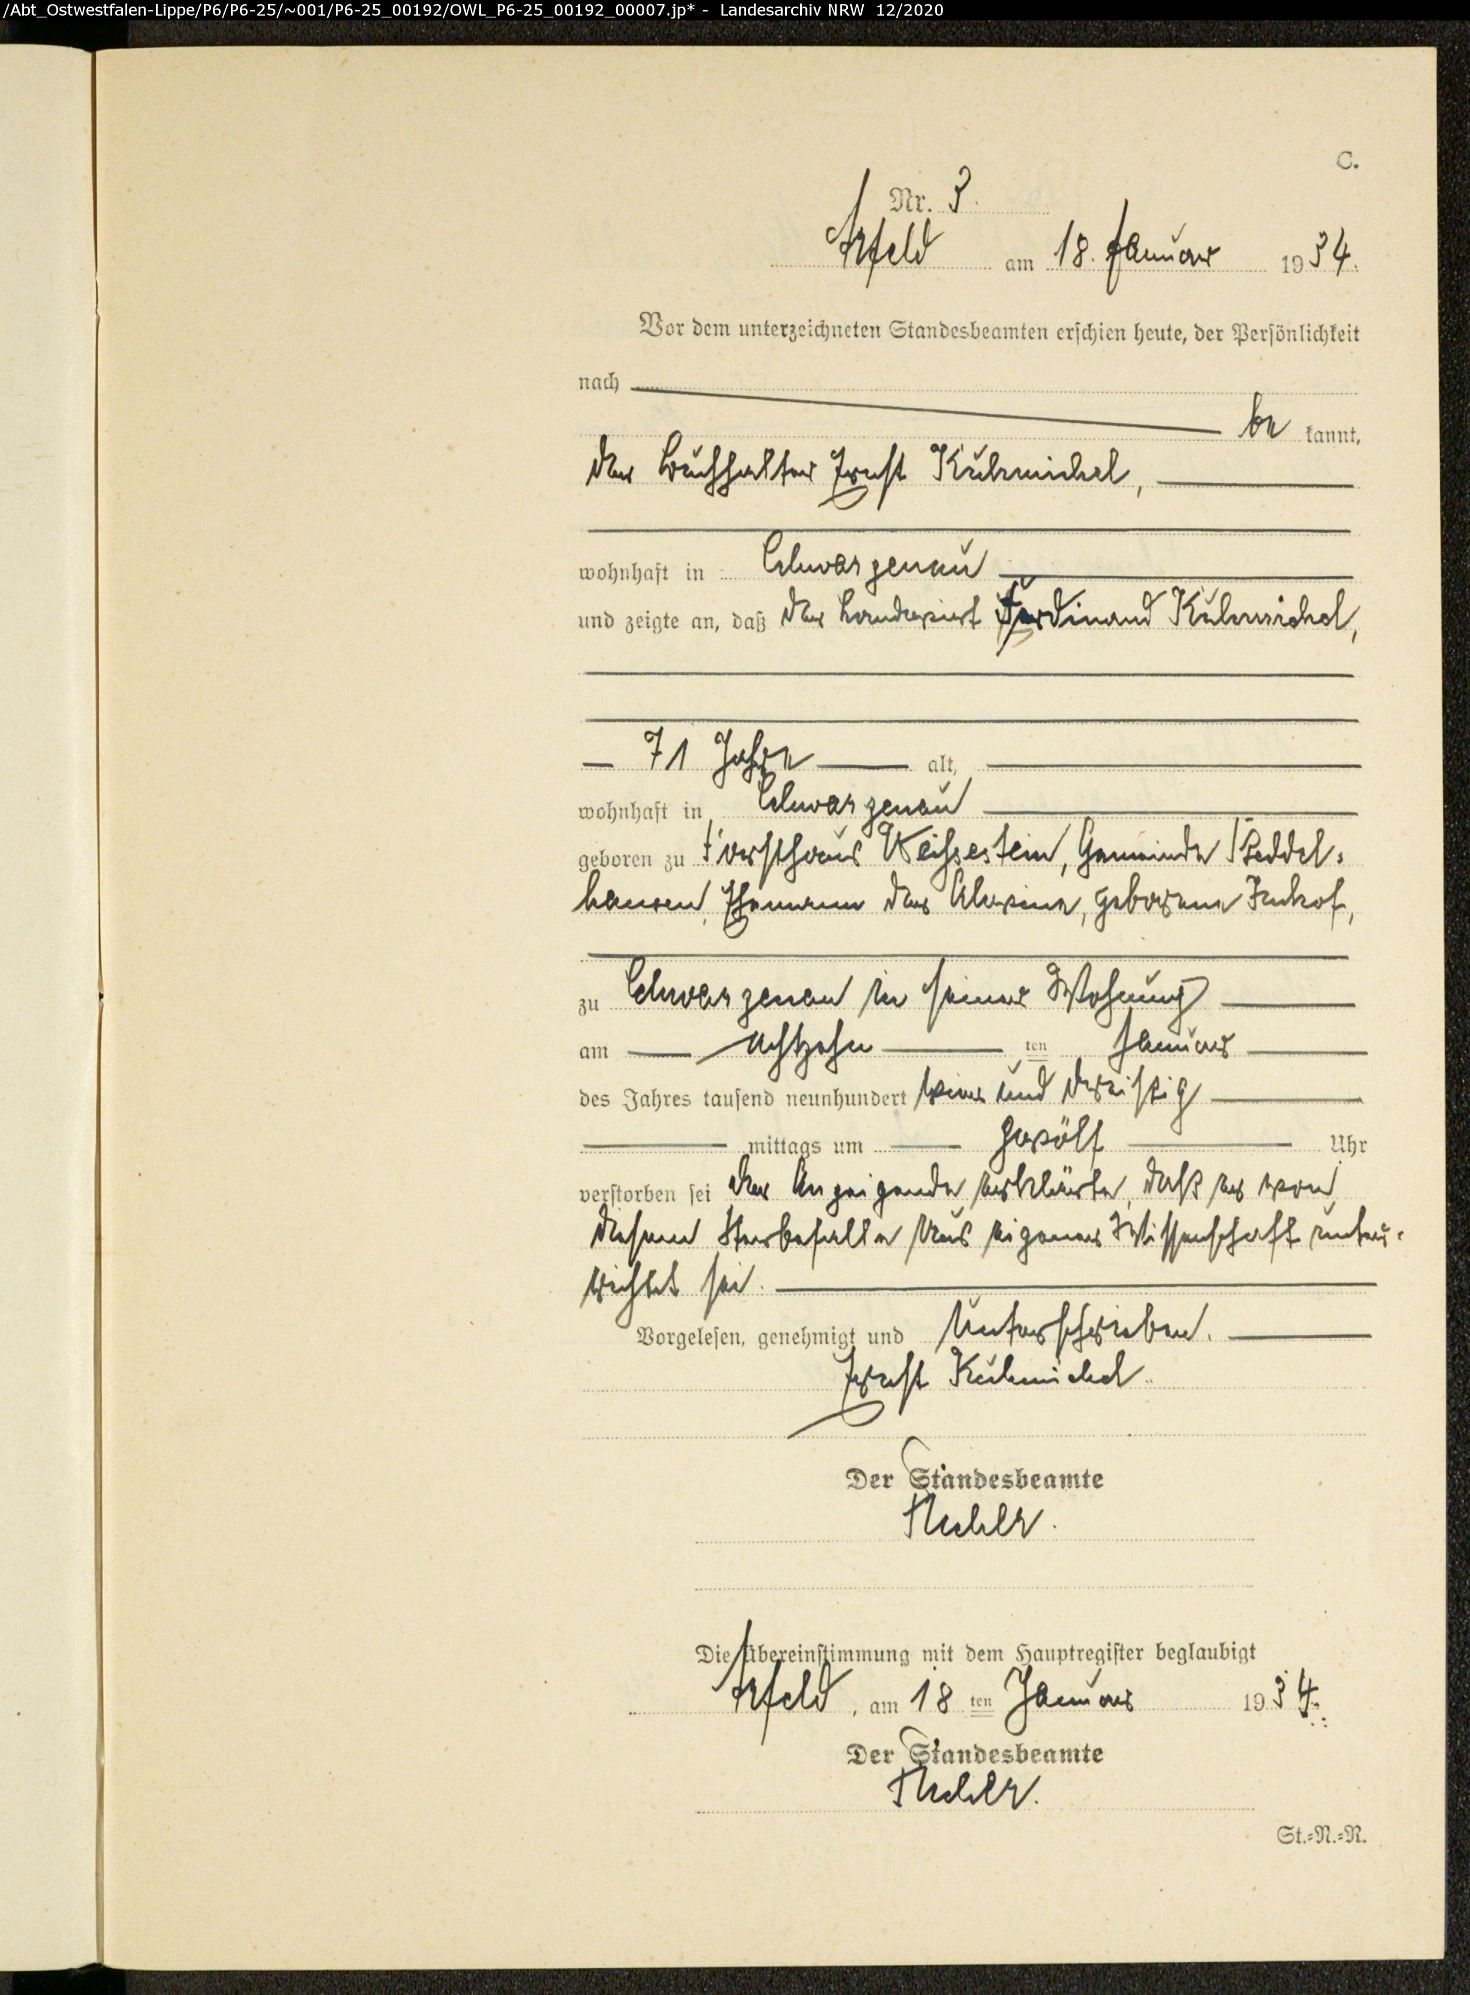 /Abt_Ostwestfalen-Lippe/P6/P6-25/~001/P6-25_00192/OWL_P6-25_00192_00007.jp* - Landesarchiv NRW 12/2020
C.
Nr. 3.
Arfeld am 18. Januar 1934.
Vor dem unterzeichneten Standesbeamten erschien heute, der Persönlichkeit
nach
be kannt,
der Buchhalter Ernst Kuhmichel,
wohnhaft in Schwarzenau
und zeigte an, daß der Landwirt Ferdinand Kuhmichel,
71 Jahre alt,
wohnhaft in Schwarzenau
geboren zu Forsthaus Weihestein, Gemeinde Beddel-
hausen, Ehemann der Alwine, geborene Imhof,
zu Schwarzenau in seiner Wohnung
am achtzehn ten Januar
des Jahres tausend neunhundert vier und dreißig
mittags um zwölf Uhr
verstorben sei der Anzeigende erklärte, daß er von
diesem Sterbefalle aus eigener Wissenschaft unter-
richtet sei.
Vorgelesen, genehmigt und unterschrieben.
Ernst Kuhmichel
Der Standesbeamte
Die Übereinstimmung mit dem Hauptregister beglaubigt
Arfeld, am 18 ten Januar 1934.
Der Standesbeamte
St.-N.-R.